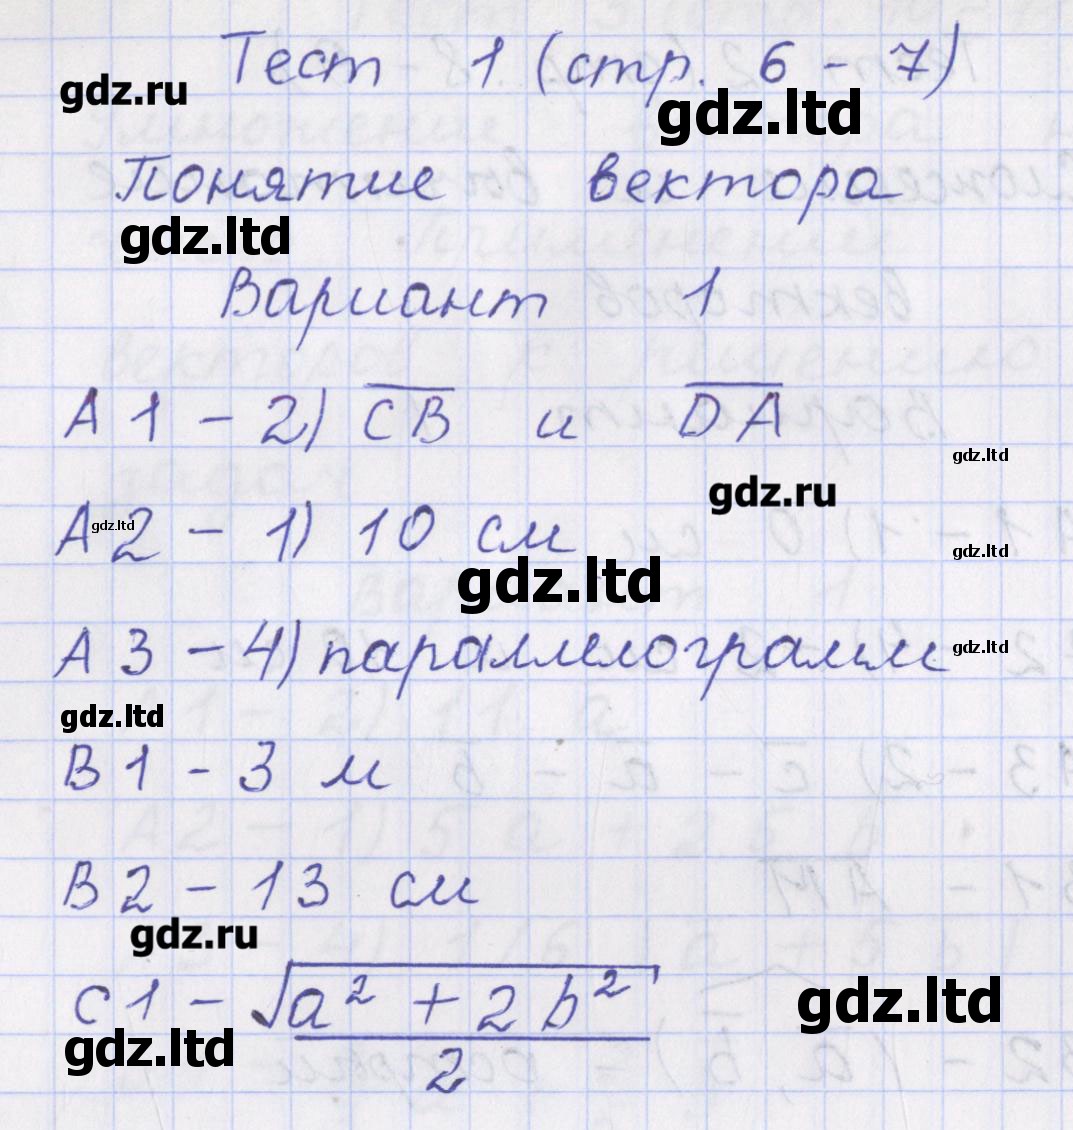 Тест 1 (стр. 6 - 7)
gdz.ru
gdz.ltd
Понятие вектора
gdz.ltd
Вариант 1
А 1 - 2) CB и DA
gdz.ltd
gdz.ru
А 2 - 1) 10 см
gdz.ltd
gdz.ltd
gdz.ltd
А 3 - 4) параллелограмм
gdz.ltd
gdz.ltd
В 1 - 3 м
В 2 - 13 см
gdz.ru
С 1 - √a² + 2 b²
gdz.ltd
gdz.ltd
2